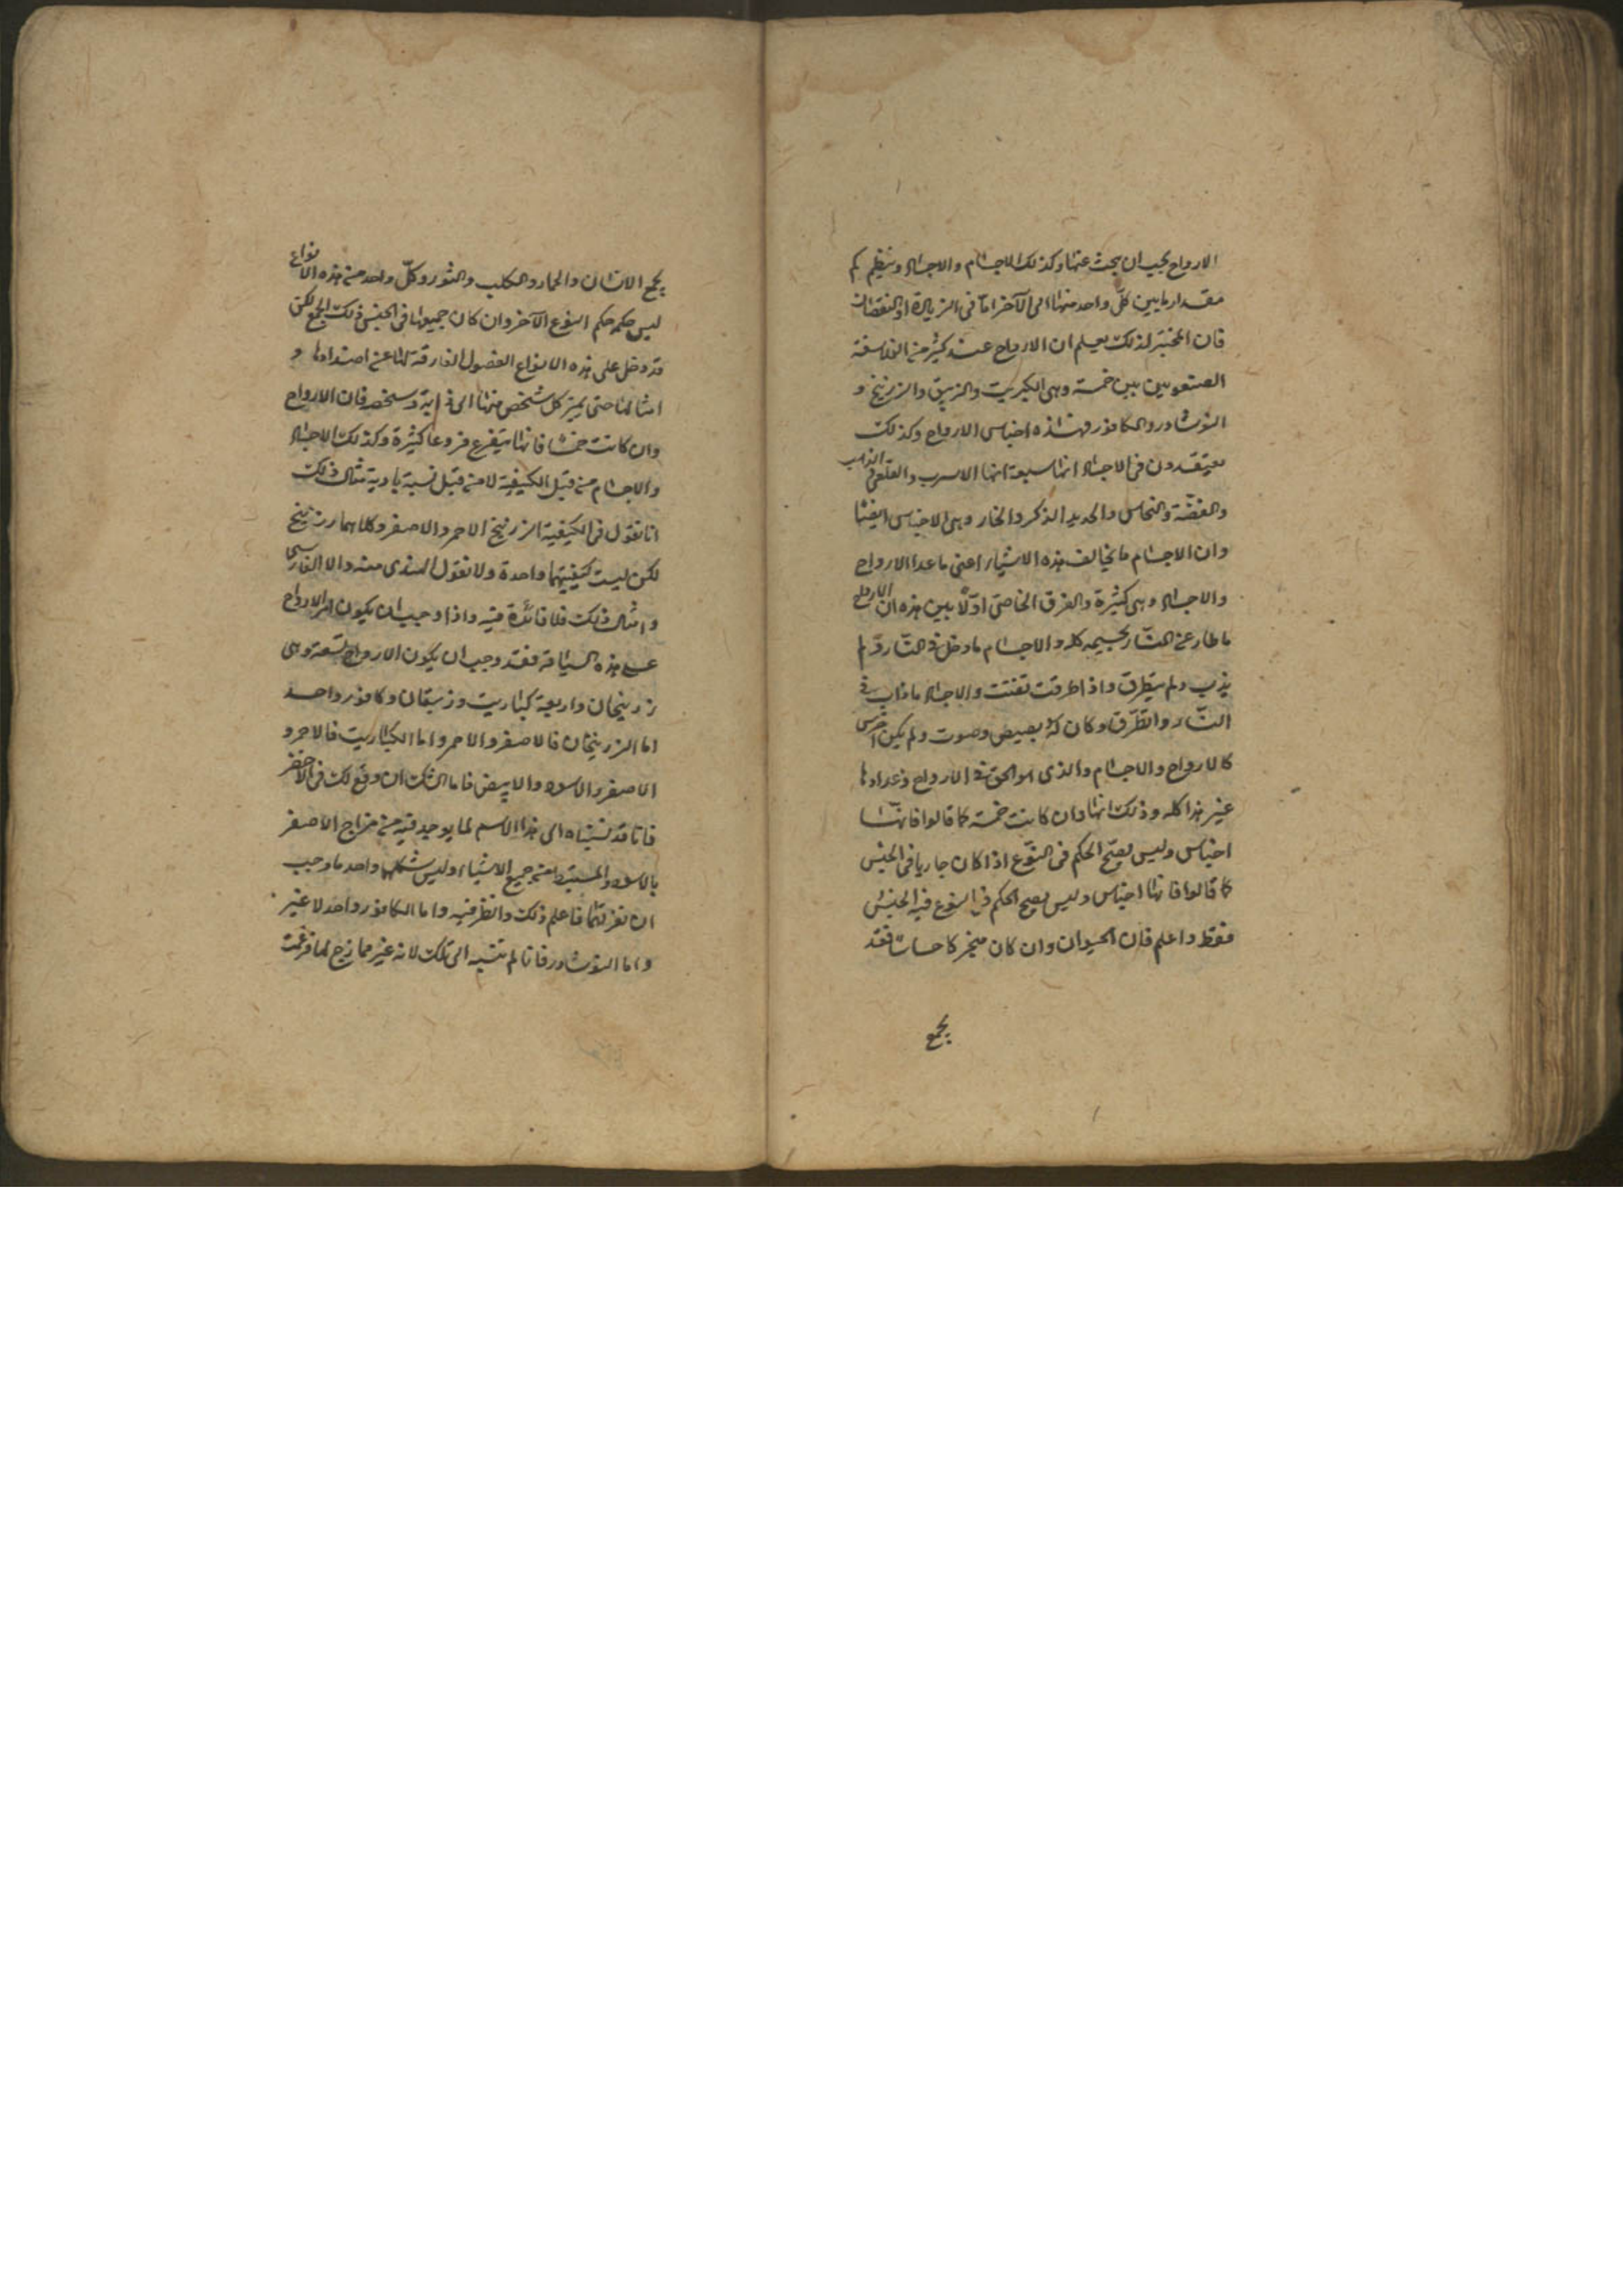 الارواح يجب ان يبحث عنها وكذلك الاجسام والاجساد وينظر كم
مقدار ما بين كل واحد منها الى الآخر اما فى الزيادة او النقصان
فان المختبر لذلك يعلم ان الارواح عند كثير من الفلاسفة
الصنعويين بين خمسة وهى الكبريت والزيبق والزرنيخ و
النوشادر والكافور فهذه اجناس الارواح وكذلك
يعتقدون فى الاجساد انها سبعة انها الاسرب والقلعى والذهب
والفضة والنحاس والحديد الذكر والخار وهى الاجناس ايضا
وان الاجسام ما يخالف هذه الاشياء اعنى ما عدا الارواح
والاجساد وهى كثيرة والفرق الخاصى اولا بين هذه ان الارواح
ما طار عن النار بجسمه كله والاجسام ما دخل فى النار ولم
يذب ولم يتطرق واذا طرقت تفتتت والاجساد ما ذاب فى
النار وانطرق وكان له بصيص وصوت ولم يكن اخرس
كالارواح والاجسام والذى هو الحق فى الارواح وعدادها
غير هذا كله وذلك انها وان كانت خمسة كما قالوا فانها
اجناس وليس يصح الحكم فى النوع اذا كان جاريا فى الجنس
كما قالوا فانها اجناس وليس يصح الحكم فى النوع فيه الجنس
فقط واعلم فان الحيوان وان كان متحركا حساسا فقد
يجمع
يجمع الانسان والحمار والكلب والثور وكل واحد من هذه الانواع
ليس حكمه حكم النوع الآخر وان كان جميعها فى الجنس ذلك الجمع لكن
قد دخل على هذه الانواع الفصول الفارقة لها عن اضدادها و
امثالها حتى يميز كل شخص منها الى فان الارواح
وان كانت خمسا فانها يتفرع فروعا كثيرة وكذلك الاجساد
والاجسام من قبل الكيفية لا من قبل نسبة بادية مثال ذلك
انا نقول فى الكيفية الزرنيخ الاحمر والاصفر وكلاهما زرنيخ
لكن ليست كيفيتهما واحدة ولا نقول الهندى منه والا الفارسى
وامثال ذلك فلا فائدة فيه واذا وجب ان يكون امر الارواح
على هذه السياقة فقد وجب ان يكون الارواح تسعة وهى
زرنيخان واربعة كباريت وزيبقان وكافور واحد
اما الزرنيخان فالاصفر والاحمر واما الكباريت فالاحمر و
الاصفر والاسود والابيض فاما الشك ان وقع لك فى الاخضر
فانا قد نسبناه الى هذا الاسم لما يوجد فيه من مزاج الاصفر
بالاسود والمستنبط من جميع الاشياء وليس شكلها واحد ما وجب
ان نفرقها فاعلم ذلك وانظر فيه واما الكافور واحد لا غير
واما النوشادر فانا لم ننسبه الى تلك لانه غير ممازج لما فرغت